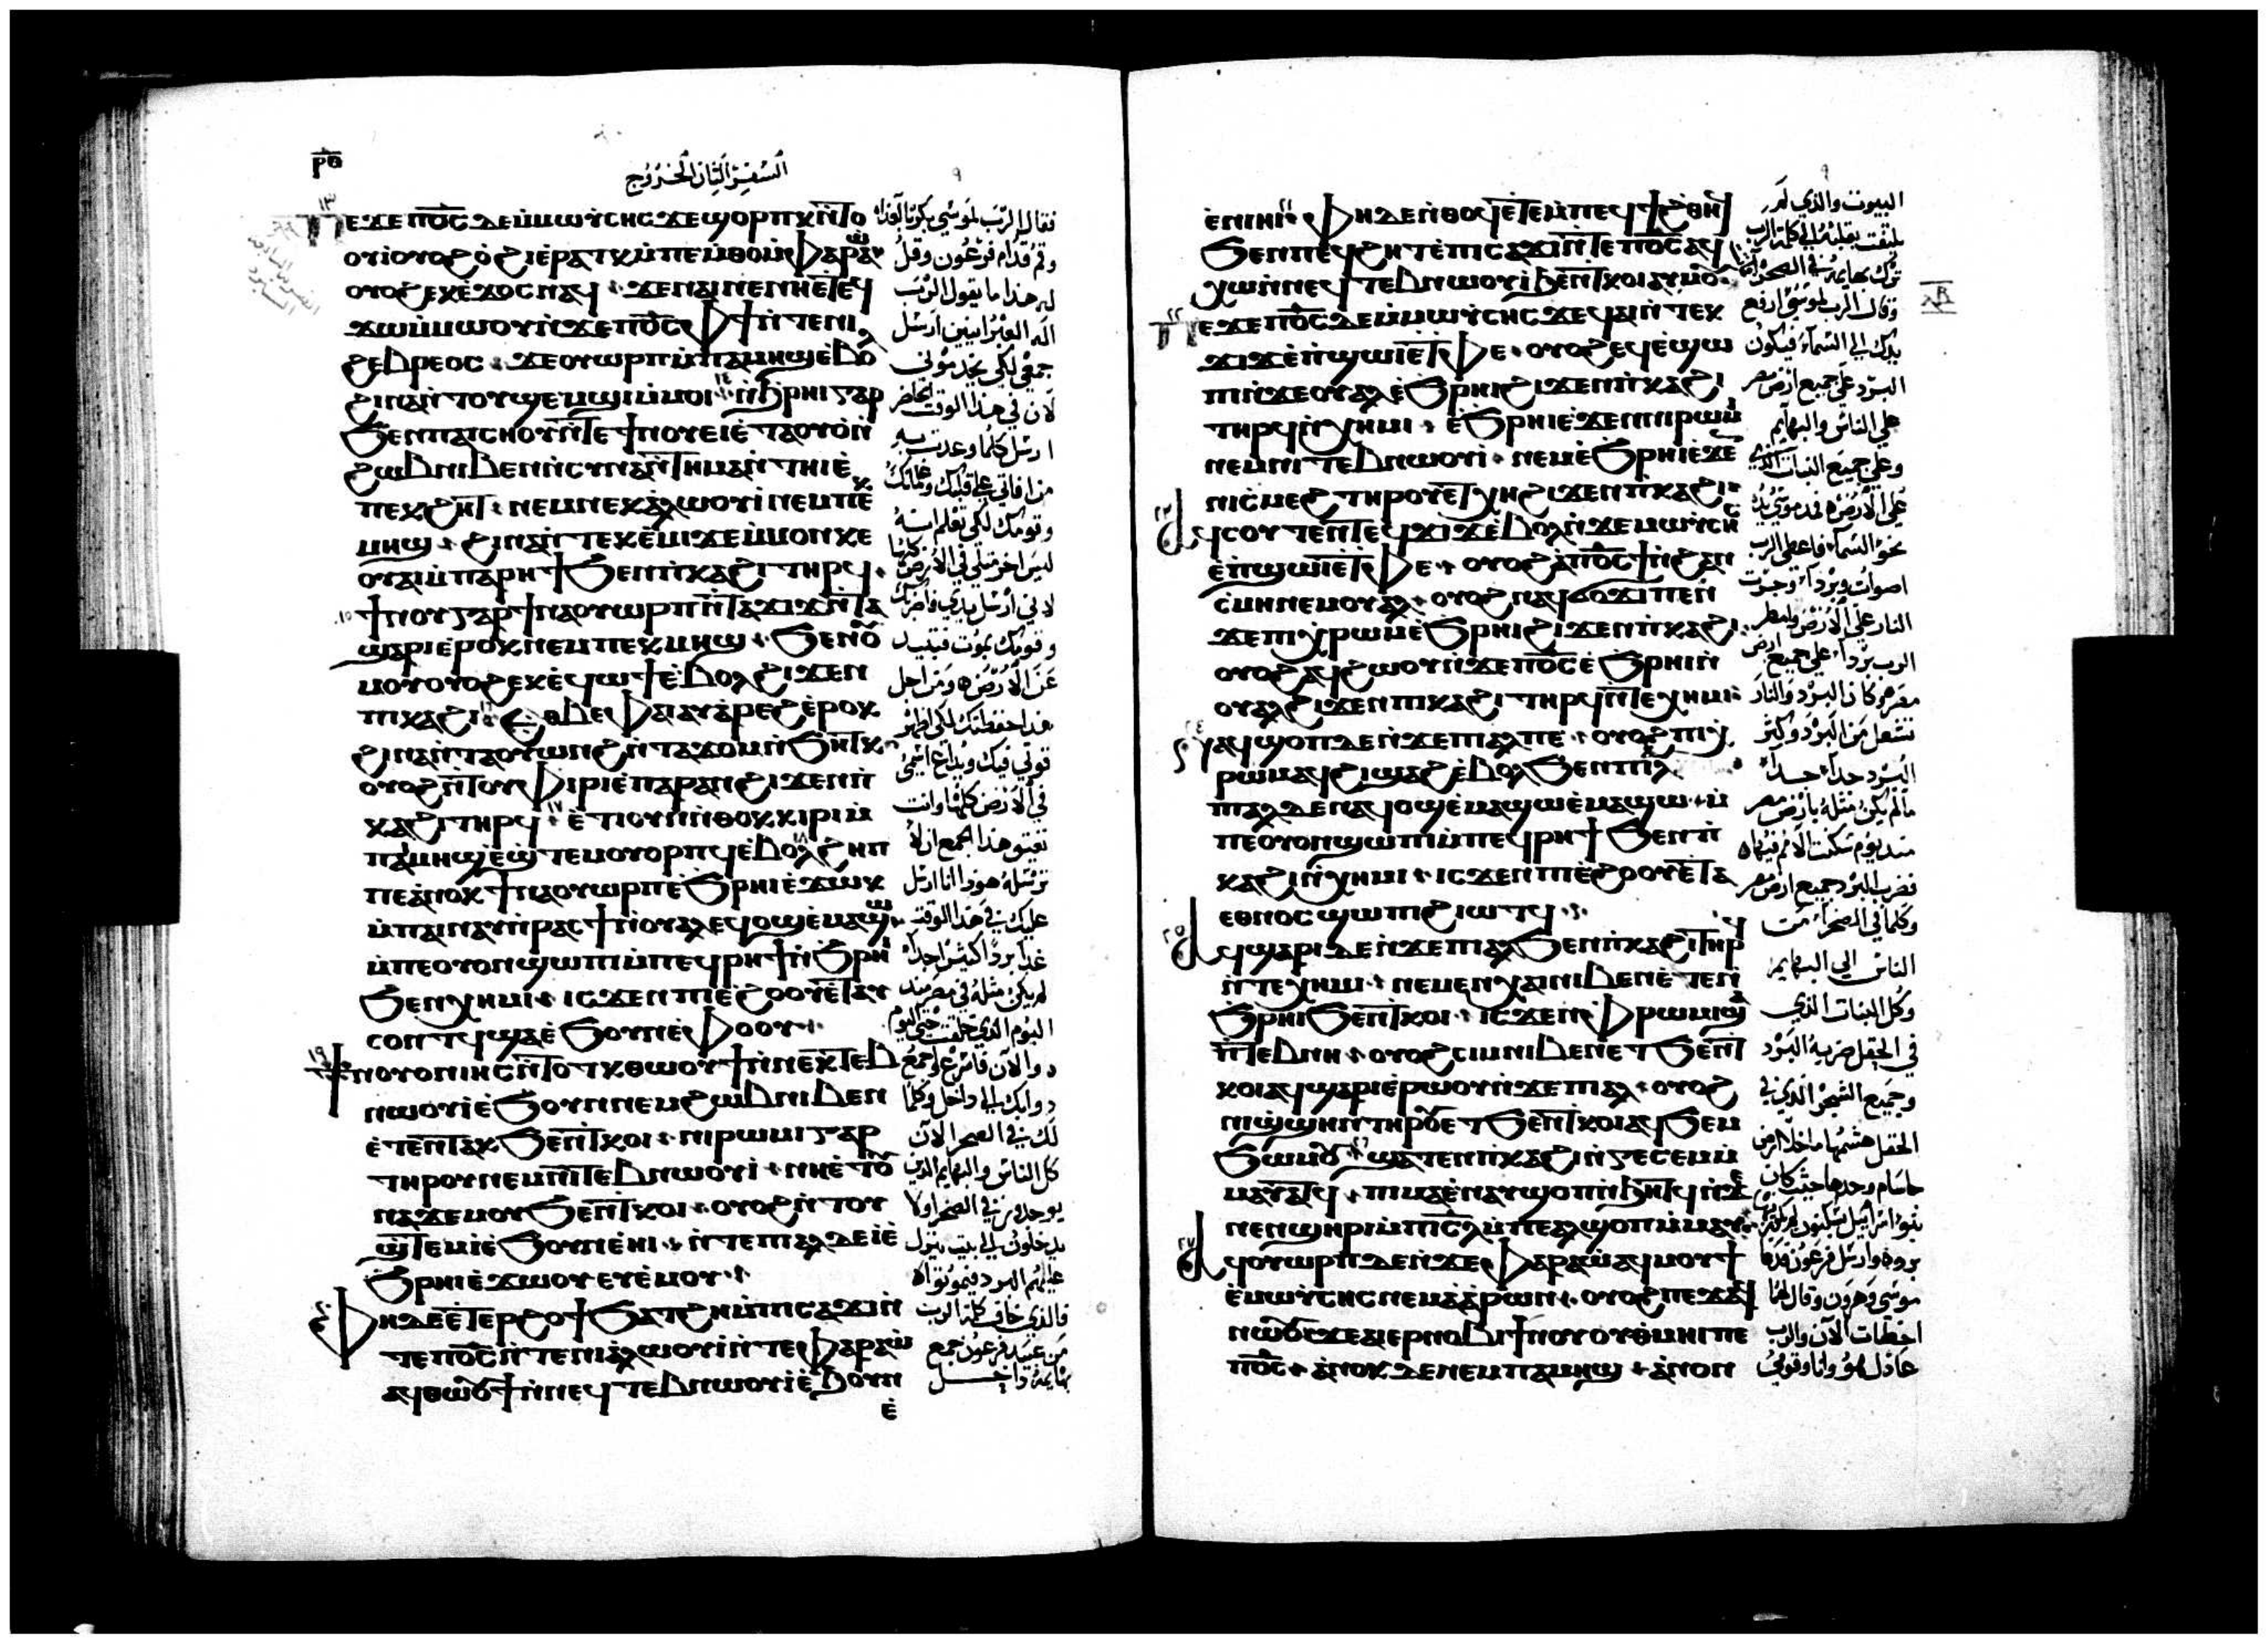 ⲣ̅ⲑ̅
السفر الثاني الخروج
٩
ⲡⲉϫⲉ ⲡⲟ̅ⲥ̅ ⲇⲉ ⲙ̀ⲙⲱⲩⲥⲏⲥ ϫⲉ ϣⲟⲣⲡⲕ ⲛ̀ⲧⲟ
ⲟⲩⲓ ⲟⲩⲟϩ ⲟ̀ϩⲓ ⲉ̀ⲣⲁⲧⲕ ⲙ̀ⲡⲉⲙⲑⲟ ⲙ̀ⲫⲁⲣⲁⲱ̀
ⲟⲩⲟϩ ⲉⲕⲉ̀ϫⲟⲥ ⲛⲁϥ ϫⲉ ⲛⲁⲓ ⲛⲉ ⲛⲏ ⲉ̀ⲧⲉϥ
ϫⲱ ⲙ̀ⲙⲱⲟⲩ ⲛ̀ϫⲉ ⲡⲟ̅ⲥ̅ ⲫϯ ⲛ̀ⲧⲉ ⲛⲓ
ϩⲉⲃⲣⲉⲟⲥ ϫⲉ ⲟⲩⲱⲣⲡ ⲙ̀ⲡⲁⲙⲏϣ ⲉ̀ⲃⲟⲗ
ϩⲓⲛⲁ ⲛ̀ⲧⲟⲩϣⲉⲙϣⲓ ⲙ̀ⲙⲟⲓ ⲛ̀ϧⲣⲏⲓ ⲅⲁⲣ
ϧⲉⲛ ⲡⲁⲓⲥⲏⲟⲩ ⲛ̀ⲧⲉ ϯⲛⲟⲩ ⲉⲓⲉ̀ⲧⲁⲟⲩⲟ̀ ⲛ̀
ϩⲱⲃ ⲛⲓⲃⲉⲛ ⲛ̀ⲥⲩⲛⲁⲛⲧⲏⲙⲁ ⲛ̀ⲧⲏⲓ ⲉ̀
ⲡⲉⲕϩⲏⲧ ⲛⲉⲙ ⲛⲉⲕⲁ̀ⲗⲱⲟⲩⲓ̀ ⲛⲉⲙ ⲡⲉⲕ
ⲙⲏϣ ϩⲓⲛⲁ ⲛ̀ⲧⲉⲕⲉ̀ⲙⲓ ϫⲉ ⲙ̀ⲙⲟⲛ ⲕⲉ
ⲟⲩⲁⲓ ⲙ̀ⲡⲁⲣⲏϯ ϧⲉⲛ ⲡ̀ⲕⲁϩⲓ ⲧⲏⲣϥ
ϯⲛⲟⲩ ⲅⲁⲣ ϯⲛⲁⲟⲩⲱⲣⲡ ⲛ̀ⲧⲁϫⲓϫ ⲛ̀ⲧⲁ
ϣⲁⲣⲓ ⲉ̀ⲣⲟⲕ ⲛⲉⲙ ⲡⲉⲕⲙⲏϣ ϧⲉⲛ ⲟⲩ
ⲙⲟⲩ ⲟⲩⲟϩ ⲉⲕⲉ̀ϥⲱϯ ⲉ̀ⲃⲟⲗ ϩⲓϫⲉⲛ
ⲡⲓⲕⲁϩⲓ ⲉⲑⲃⲉ ⲫⲁⲓ ⲁⲩⲁ̀ⲣⲉϩ ⲉ̀ⲣⲟⲕ
ϩⲓⲛⲁ ⲛ̀ⲧⲁⲟⲩⲱⲛϩ ⲛ̀ⲧⲁϫⲟⲙ ⲛ̀ϧⲏⲧⲕ
ⲟⲩⲟϩ ⲛ̀ⲧⲟⲩⲫⲓⲣⲓ ⲉ̀ⲡⲁⲣⲁⲛ ϩⲓϫⲉⲛ ⲡ̀
ⲕⲁϩⲓ ⲧⲏⲣϥ ⲉ̀ⲧⲓ ⲟⲩⲛ ⲛ̀ⲑⲟⲕ ⲕⲓⲣⲓ ⲙ̀
ⲡⲁⲙⲏϣ ⲉ̀ϣⲧⲉⲙⲟⲩⲟⲣⲡϥ ⲉ̀ⲃⲟⲗ ϩⲏⲡ
ⲡⲉ ⲁ̀ⲛⲟⲕ ϯⲛⲁⲟⲩⲱⲣⲡ ⲉ̀ϧⲣⲏⲓ ⲉ̀ϫⲱⲕ
ⲙ̀ⲡⲁⲓⲛⲁⲩ ⲛ̀ⲣⲁⲥϯ ⲛ̀ⲟⲩⲁⲗ ⲉϥⲟϣ ⲉ̀ⲙⲁϣⲱ
ⲙ̀ⲡⲉ ⲟⲩⲟⲛ ϣⲱⲡⲓ ⲙ̀ⲡⲉϥⲣⲏϯ ⲛ̀ϧⲣⲏⲓ
ϧⲉⲛ ⲭⲏⲙⲓ ⲓⲥϫⲉⲛ ⲡⲓⲉ̀ϩⲟⲟⲩ ⲉ̀ⲧⲁⲩ
ⲥⲟⲛⲧϥ ϣⲁ ⲉ̀ϧⲟⲩⲛ ⲉ̀ⲫⲟⲟⲩ
ϯⲛⲟⲩ ⲟⲛ ⲓⲏⲥ ⲛ̀ⲧⲟⲧⲕ ⲑⲱⲟⲩϯ ⲛ̀ⲛⲉⲕⲧⲉⲃ
ⲛⲱⲟⲩⲓ̀ ⲉ̀ϧⲟⲩⲛ ⲛⲉⲙ ϩⲱⲃ ⲛⲓⲃⲉⲛ
ⲉ̀ⲧⲉⲛⲧⲁⲕ ϧⲉⲛ ⲧ̀ⲕⲟⲓ ⲛⲓⲣⲱⲙⲓ ⲅⲁⲣ
ⲧⲏⲣⲟⲩ ⲛⲉⲙ ⲛⲓⲧⲉⲃⲛⲱⲟⲩⲓ̀ ⲛⲏ ⲉ̀ⲧⲟⲩ
ⲛⲁϫⲉⲙⲟⲩ ϧⲉⲛ ⲧ̀ⲕⲟⲓ ⲟⲩⲟϩ ⲛ̀ⲧⲟⲩ
ϣ̀ⲧⲉⲙⲓ̀ ⲉ̀ϧⲟⲩⲛ ⲉ̀ⲏⲓ ⲛ̀ⲧⲉ ⲡⲓⲁⲗ ⲇⲉ ⲓ̀ ⲉ̀
ϧⲣⲏⲓ ⲉ̀ϫⲱⲟⲩ ⲉⲩⲉ̀ⲙⲟⲩ
ⲫⲏ ⲇⲉ ⲉ̀ⲧⲉⲣϩⲟϯ ϧⲁⲧϩⲏ ⲙ̀ⲡⲓⲥⲁϫⲓ ⲛ̀
ⲧⲉ ⲡⲟ̅ⲥ̅ ⲛ̀ⲧⲉ ⲛⲓⲁ̀ⲗⲱⲟⲩⲓ̀ ⲛ̀ⲧⲉ ⲫⲁⲣⲁⲱ̀
ⲁϥⲑⲱⲟⲩϯ ⲛ̀ⲛⲉϥⲧⲉⲃⲛⲱⲟⲩⲓ̀ ⲉ̀ϧⲟⲩⲛ
ⲉ̀
فقال الرب لموسي بكر بالغداه
وقم قدام فرعون وقل
له هذا ما يقول الرب
اله العبرانيين ارسل
جمعي لكي يخدموني
لان في هذا الوقت الحاضر
ارسل كلما وعدت به
من افاتي علي قلبك وغلمانك
وقومك لكي تعلم انه
ليس اخر مثلي في الارض كلها
لاني ارسل يدي واضربك
وقومك بموت فتبيد
عن الارض ومن اجل
هذا حفظتك لكي اظهر
قوتي فيك ويذاع اسمي
في الارض كلها وانت
تعيق هذا الجمع ان لا
ترسله هوذا انا ارسل
عليك في هذا الوقت
غدا بردا كثيرا جدا
لم يكن مثله في مصر منذ
اليوم الذي خلقت حتي اليوم
والآن فاسرع واجمع
دوابك الي داخل وكلما
لك في الصحرا الآن
كل الناس والبهايم الذين
يوجدون في الصحرا ولا
يدخلون الي بيت ينزل
عليهم البرد فيموتوا
فالذي خاف كلمة الرب
من عبيد فرعون جمع
بهايمه داخل
٩
ⲉ̀ⲛⲓⲏⲓ ⲫⲏ ⲇⲉ ⲛ̀ⲑⲟϥ ⲉ̀ⲧⲉ ⲙ̀ⲡⲉϥϯϩⲑⲏϥ
ϧⲉⲛ ⲡⲉϥϩⲏⲧ ⲉ̀ⲡⲓⲥⲁϫⲓ ⲛ̀ⲧⲉ ⲡⲟ̅ⲥ̅ ⲁϥ
ⲭⲱ ⲛ̀ⲛⲉϥⲧⲉⲃⲛⲱⲟⲩⲓ̀ ϧⲉⲛ ⲧ̀ⲕⲟⲓ ⲁⲩⲙⲟⲩ
ⲡⲉϫⲉ ⲡⲟ̅ⲥ̅ ⲇⲉ ⲙ̀ⲙⲱⲩⲥⲏⲥ ϫⲉ ϥⲁⲓ ⲛ̀ⲧⲉⲕ
ϫⲓϫ ⲉ̀ⲡ̀ϣⲱⲓ ⲉ̀ⲧⲫⲉ ⲟⲩⲟϩ ⲉϥⲉ̀ϣⲱ
ⲡⲓ ⲛ̀ϫⲉ ⲟⲩⲁⲗ ⲉ̀ϧⲣⲏⲓ ϩⲓϫⲉⲛ ⲡ̀ⲕⲁϩⲓ
ⲧⲏⲣϥ ⲛ̀ⲭⲏⲙⲓ ⲉ̀ϧⲣⲏⲓ ⲉ̀ϫⲉⲛ ⲛⲓⲣⲱⲙⲓ
ⲛⲉⲙ ⲛⲓⲧⲉⲃⲛⲱⲟⲩⲓ̀ ⲛⲉⲙ ⲉ̀ϧⲣⲏⲓ ⲉ̀ϫⲉⲛ
ⲛⲓⲥⲙⲉϩ ⲧⲏⲣⲟⲩ ⲉ̀ⲧⲭⲏ ϩⲓϫⲉⲛ ⲡ̀ⲕⲁϩⲓ
ⲁϥⲥⲟⲩⲧⲉⲛ ⲧⲉϥϫⲓϫ ⲉ̀ⲃⲟⲗ ⲛ̀ϫⲉ ⲙⲱⲩⲥⲏⲥ
ⲉ̀ⲡ̀ϣⲱⲓ ⲉ̀ⲧⲫⲉ ⲟⲩⲟϩ ⲁ̀ ⲡⲟ̅ⲥ̅ ϯ ⲛ̀ϩⲁⲛ
ⲥ̀ⲙⲏ ⲛⲉⲙ ⲟⲩⲁⲗ ⲟⲩⲟϩ ⲛⲁϥϭⲟϫⲓ ⲡⲉ ⲛ̀
ϫⲉ ⲡⲓⲭⲣⲱⲙ ⲉ̀ϧⲣⲏⲓ ϩⲓϫⲉⲛ ⲡ̀ⲕⲁϩⲓ
ⲟⲩⲟϩ ⲁϥϩⲱⲟⲩ ⲛ̀ϫⲉ ⲡⲟ̅ⲥ̅ ⲉ̀ϧⲣⲏⲓ ⲛ̀
ⲟⲩⲁⲗ ϩⲓϫⲉⲛ ⲡⲓⲕⲁϩⲓ ⲧⲏⲣϥ ⲛ̀ⲧⲉ ⲭⲏⲙⲓ
ⲛⲁϥϣⲟⲡ ⲇⲉ ⲛ̀ϫⲉ ⲡⲓⲁⲗ ⲡⲉ ⲟⲩⲟϩ ⲡⲓⲭ
ⲣⲱⲙ ⲁϥϩⲓϣⲁϩ ⲉ̀ⲃⲟⲗ ϧⲉⲛ ⲡⲓⲁⲗ
ⲡⲓⲁⲗ ⲇⲉ ⲛⲁϥⲟϣ ⲉ̀ⲙⲁϣⲱ ⲉ̀ⲙⲁϣⲱ ⲙ̀
ⲡⲉ ⲟⲩⲟⲛ ϣⲱⲡⲓ ⲙ̀ⲡⲉϥⲣⲏϯ ϧⲉⲛ ⲡ̀
ⲕⲁϩⲓ ⲛ̀ⲭⲏⲙⲓ ⲓⲥϫⲉⲛ ⲡⲓⲉ̀ϩⲟⲟⲩ ⲉ̀ⲧⲁ
ⲉⲑⲛⲟⲥ ϣⲱⲡⲓ ϩⲓⲱⲧϥ
ⲁϥϣⲁⲣⲓ ⲇⲉ ⲛ̀ϫⲉ ⲡⲓⲁⲗ ϧⲉⲛ ⲡ̀ⲕⲁϩⲓ ⲧⲏⲣϥ
ⲛ̀ⲧⲉ ⲭⲏⲙⲓ ⲛⲉⲙ ⲉⲛⲭⲁⲓ ⲛⲓⲃⲉⲛ ⲉ̀ⲧⲉⲛ̀
ϧⲣⲏⲓ ϧⲉⲛ ⲧ̀ⲕⲟⲓ ⲓⲥϫⲉⲛ ⲫ̀ⲣⲱⲙⲓ ϣⲁ
ⲛ̀ⲧⲉⲃⲛⲏ ⲟⲩⲟϩ ⲥⲓⲙ ⲛⲓⲃⲉⲛ ⲉⲧϧⲉⲛ ⲧ̀
ⲕⲟⲓ ⲁϥϣⲁⲣⲓ ⲉ̀ⲣⲱⲟⲩ ⲛ̀ϫⲉ ⲡⲓⲁⲗ ⲟⲩⲟϩ
ⲛⲓϣ̀ϣⲏⲛ ⲧⲏⲣⲟⲩ ⲉⲧϧⲉⲛ ⲧ̀ⲕⲟⲓ ⲁϥϧⲉⲙ
ϧⲱⲙⲟⲩ ϣⲁⲧⲉⲛ ⲡ̀ⲕⲁϩⲓ ⲛ̀ⲅⲉⲥⲉⲙ ⲙ̀
ⲙⲁⲩⲁⲧϥ ⲡⲓⲙⲁ ⲉ̀ⲛⲁⲩϣⲟⲡ ⲛ̀ϧⲏⲧϥ ⲛ̀ϫⲉ
ⲛⲉⲛϣⲏⲣⲓ ⲙ̀ⲡⲓⲥ̅ⲗ̅ ⲙ̀ⲡⲉ ⲁⲗ ϣⲟⲡ ⲙ̀ⲙⲁⲩ
ⲁϥⲟⲩⲱⲣⲡ ⲇⲉ ⲛ̀ϫⲉ ⲫⲁⲣⲁⲱ̀ ⲁϥⲙⲟⲩϯ
ⲉ̀ⲙⲱⲩⲥⲏⲥ ⲛⲉⲙ ⲁ̀ⲁ̀ⲣⲱⲛ ⲟⲩⲟϩ ⲡⲉϫⲁϥ
ⲛⲱⲟⲩ ϫⲉ ⲁⲓⲉⲣⲛⲟⲃⲓ ϯⲛⲟⲩ ⲟⲩⲑⲙⲏⲓ ⲡⲉ
ⲡⲟ̅ⲥ̅ ⲁ̀ⲛⲟⲕ ⲇⲉ ⲛⲉⲙ ⲡⲁⲙⲏϣ ⲁ̀ⲛⲟⲛ
البيوت والذي لم
يلتفت بقلبه الي كلمة الرب
ترك بهايمه في الصحرا
وقال الرب لموسي ارفع
يدك الي السماء فيكون
البرد علي جميع ارض مصر
علي الناس والبهايم
وعلي جميع النبات الذي
علي الارض فمد موسي يده
نحو السماء فاعطي الرب
اصوات وبردا وجرت
النار علي الارض وامطر
الرب بردا علي جميع ارض
مصر وكان البرد والنار
تشعل من البرد وكثر
البرد جدا جدا
مالم يكن مثله بارض مصر
منذ يوم سكنت الامم فيها
فضرب البرد جميع ارض مصر
وكلما في الصحراء من
الناس الي البهايم
وكل النبات الذي
في الحقل ضربه البرد
وجميع الشجر الذي في
الحقل هشمها ما خلا ارض
جاسام وحدها حيث كان
بنو اسراييل يسكنون لم يكن
برد وارسل فرعون فدعا
موسي وهرون وقال لهما
اخطات الآن والرب
عادل هو وانا وقومي